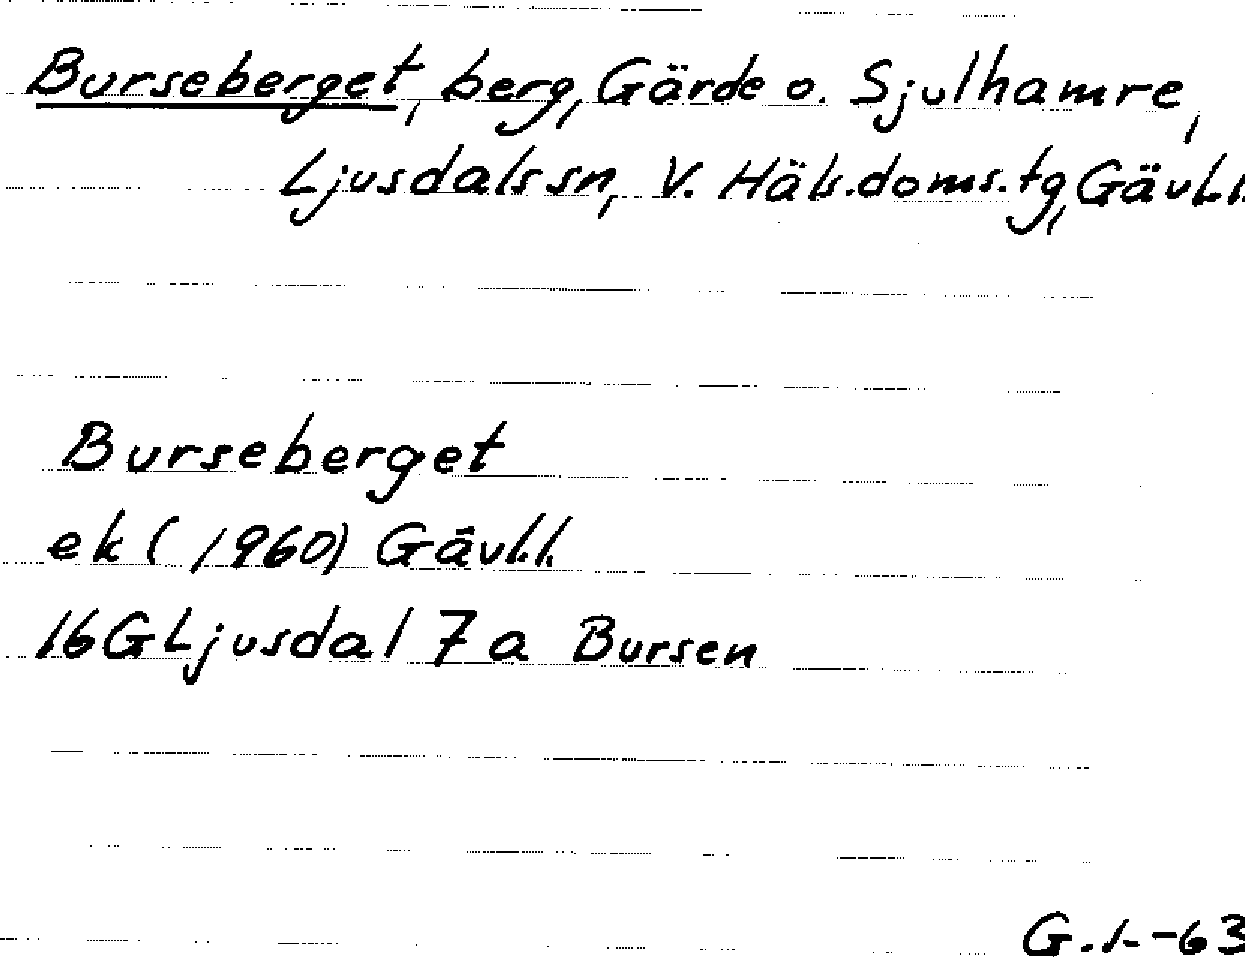 Burseberget, berg, Gärde o. Sjulhamre,
Ljusdals sn, V. Häls.doms.tg, Gävl.l.
Burseberget
ek (1960) Gävl.l.
16G Ljusdal 7a Bursen
G.L-63